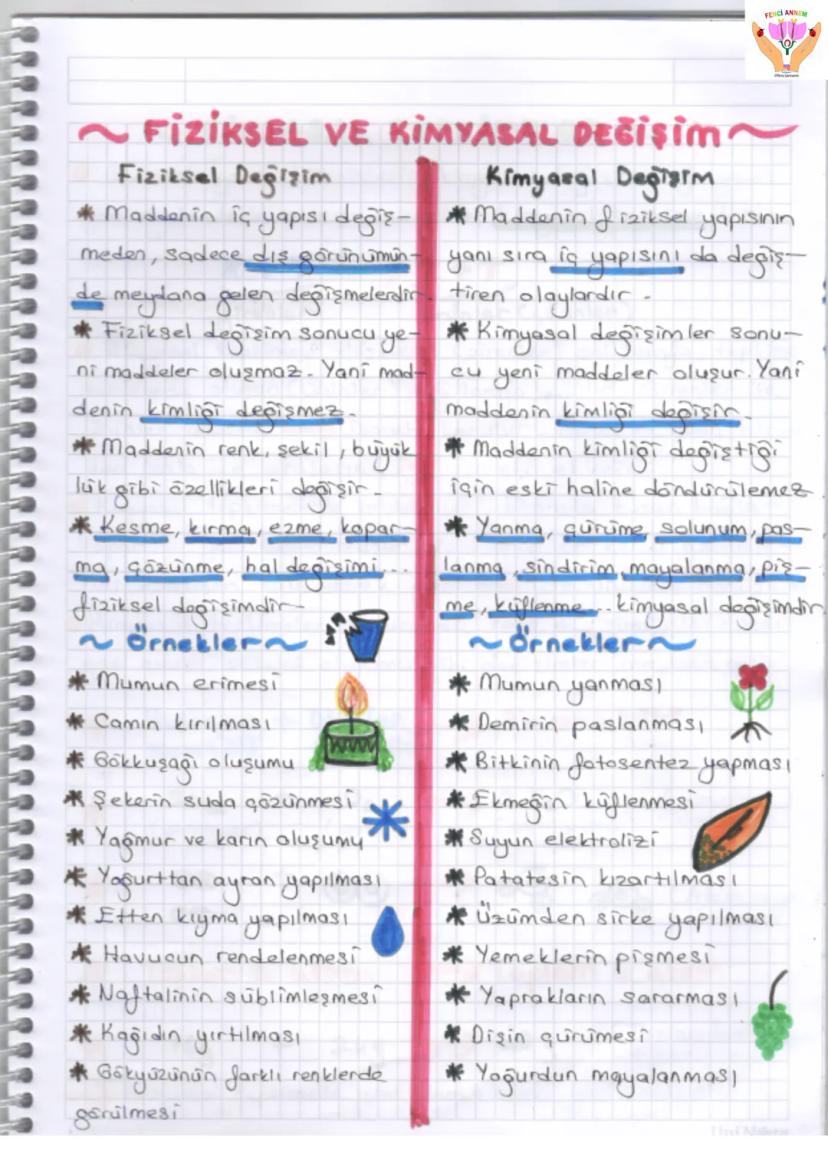 FENCİ ANNEM
~ FİZİKSEL VE KİMYASAL DEĞİŞİM ~
Fiziksel Değişim
* Maddenin iç yapısı değiş-
meden, sadece dış görünümün-
de meydana gelen değişmelerdir.
* Fiziksel değişim sonucu ye-
ni maddeler oluşmaz. Yani mad-
denin kimliği değişmez.
* Maddenin renk, şekil, büyük
lük gibi özellikleri değişir.
* Kesme, kırma, ezme, kopar-
ma, çözünme, hal değişimi...
fiziksel değişimdir.
~ Örnekler ~
* Mumun erimesi
* Camın kırılması
* Gökkuşağı oluşumu
* Şekerin suda çözünmesi
* Yağmur ve karın oluşumu
* Yoğurttan ayran yapılması
* Etten kıyma yapılması
* Havucun rendelenmesi
* Naftalinin süblimleşmesi
* Kağıdın yırtılması
* Gökyüzünün farklı renklerde
görülmesi
Kimyasal Değişim
* Maddenin fiziksel yapısının
yanı sıra iç yapısını da değiş-
tiren olaylardır.
* Kimyasal değişimler sonu-
cu yeni maddeler oluşur. Yani
maddenin kimliği değişir.
* Maddenin kimliği değiştiği
için eski haline döndürülemez.
* Yanma, çürüme, solunum, pas-
lanma, sindirim, mayalanma, piş-
me, küflenme... kimyasal değişimdir
~ Örnekler ~
* Mumun yanması
* Demirin paslanması
* Bitkinin fotosentez yapması
* Ekmeğin küflenmesi
* Suyun elektrolizi
* Patatesin kızartılması
* Üzümden sirke yapılması
* Yemeklerin pişmesi
* Yaprakların sararması
* Dişin çürümesi
* Yoğurdun mayalanması